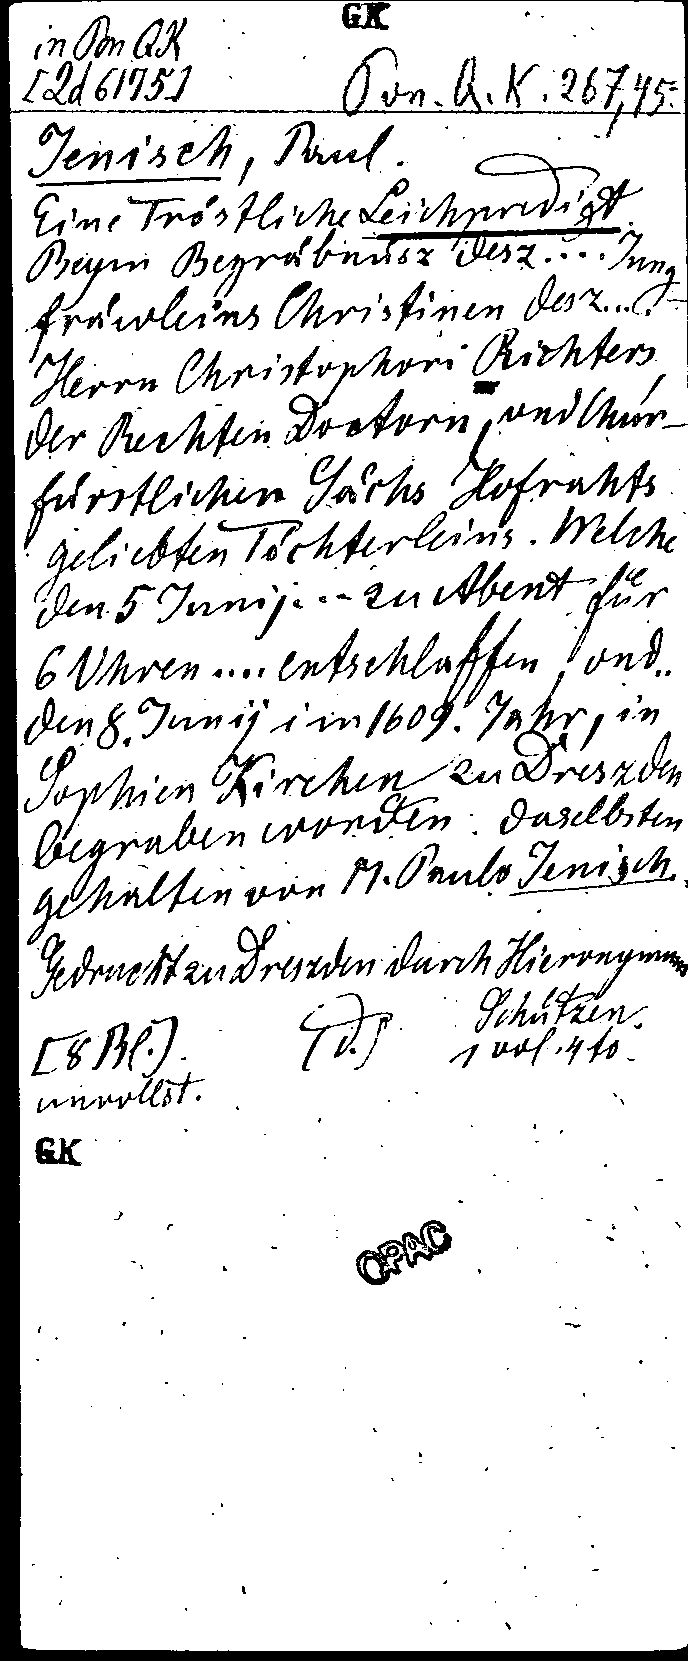 GK
in Pon QK
[2d 6175]
Pon. Q. K. 267,45.
Jenisch, Paul.
Eine Tröstliche Leichpredigt
Beym Begräbnüsz desz.... Jung
fräwleins Christinen desz....
Herrn Christophori Richters,
der Rechten Doctorn, vnd Chur-
fürstlichen Sächs Hofrahts
geliebten Töchterleins. Welche
den 5 Junij... zu Abent für
6 Vhren.... entschlaffen, vnd..
den 8. Junij im 1609. Jahr, in
Sophien Kirchen zu Dreszden
begraben worden: daselbsten
gehalten von M. Paulo Jenisch.
Gedruckt zu Dreszden durch Hieronymum
Schützen.
[8 Bl.] (d.) 1 vol. 4to.
unvollst.
GK
OPAC